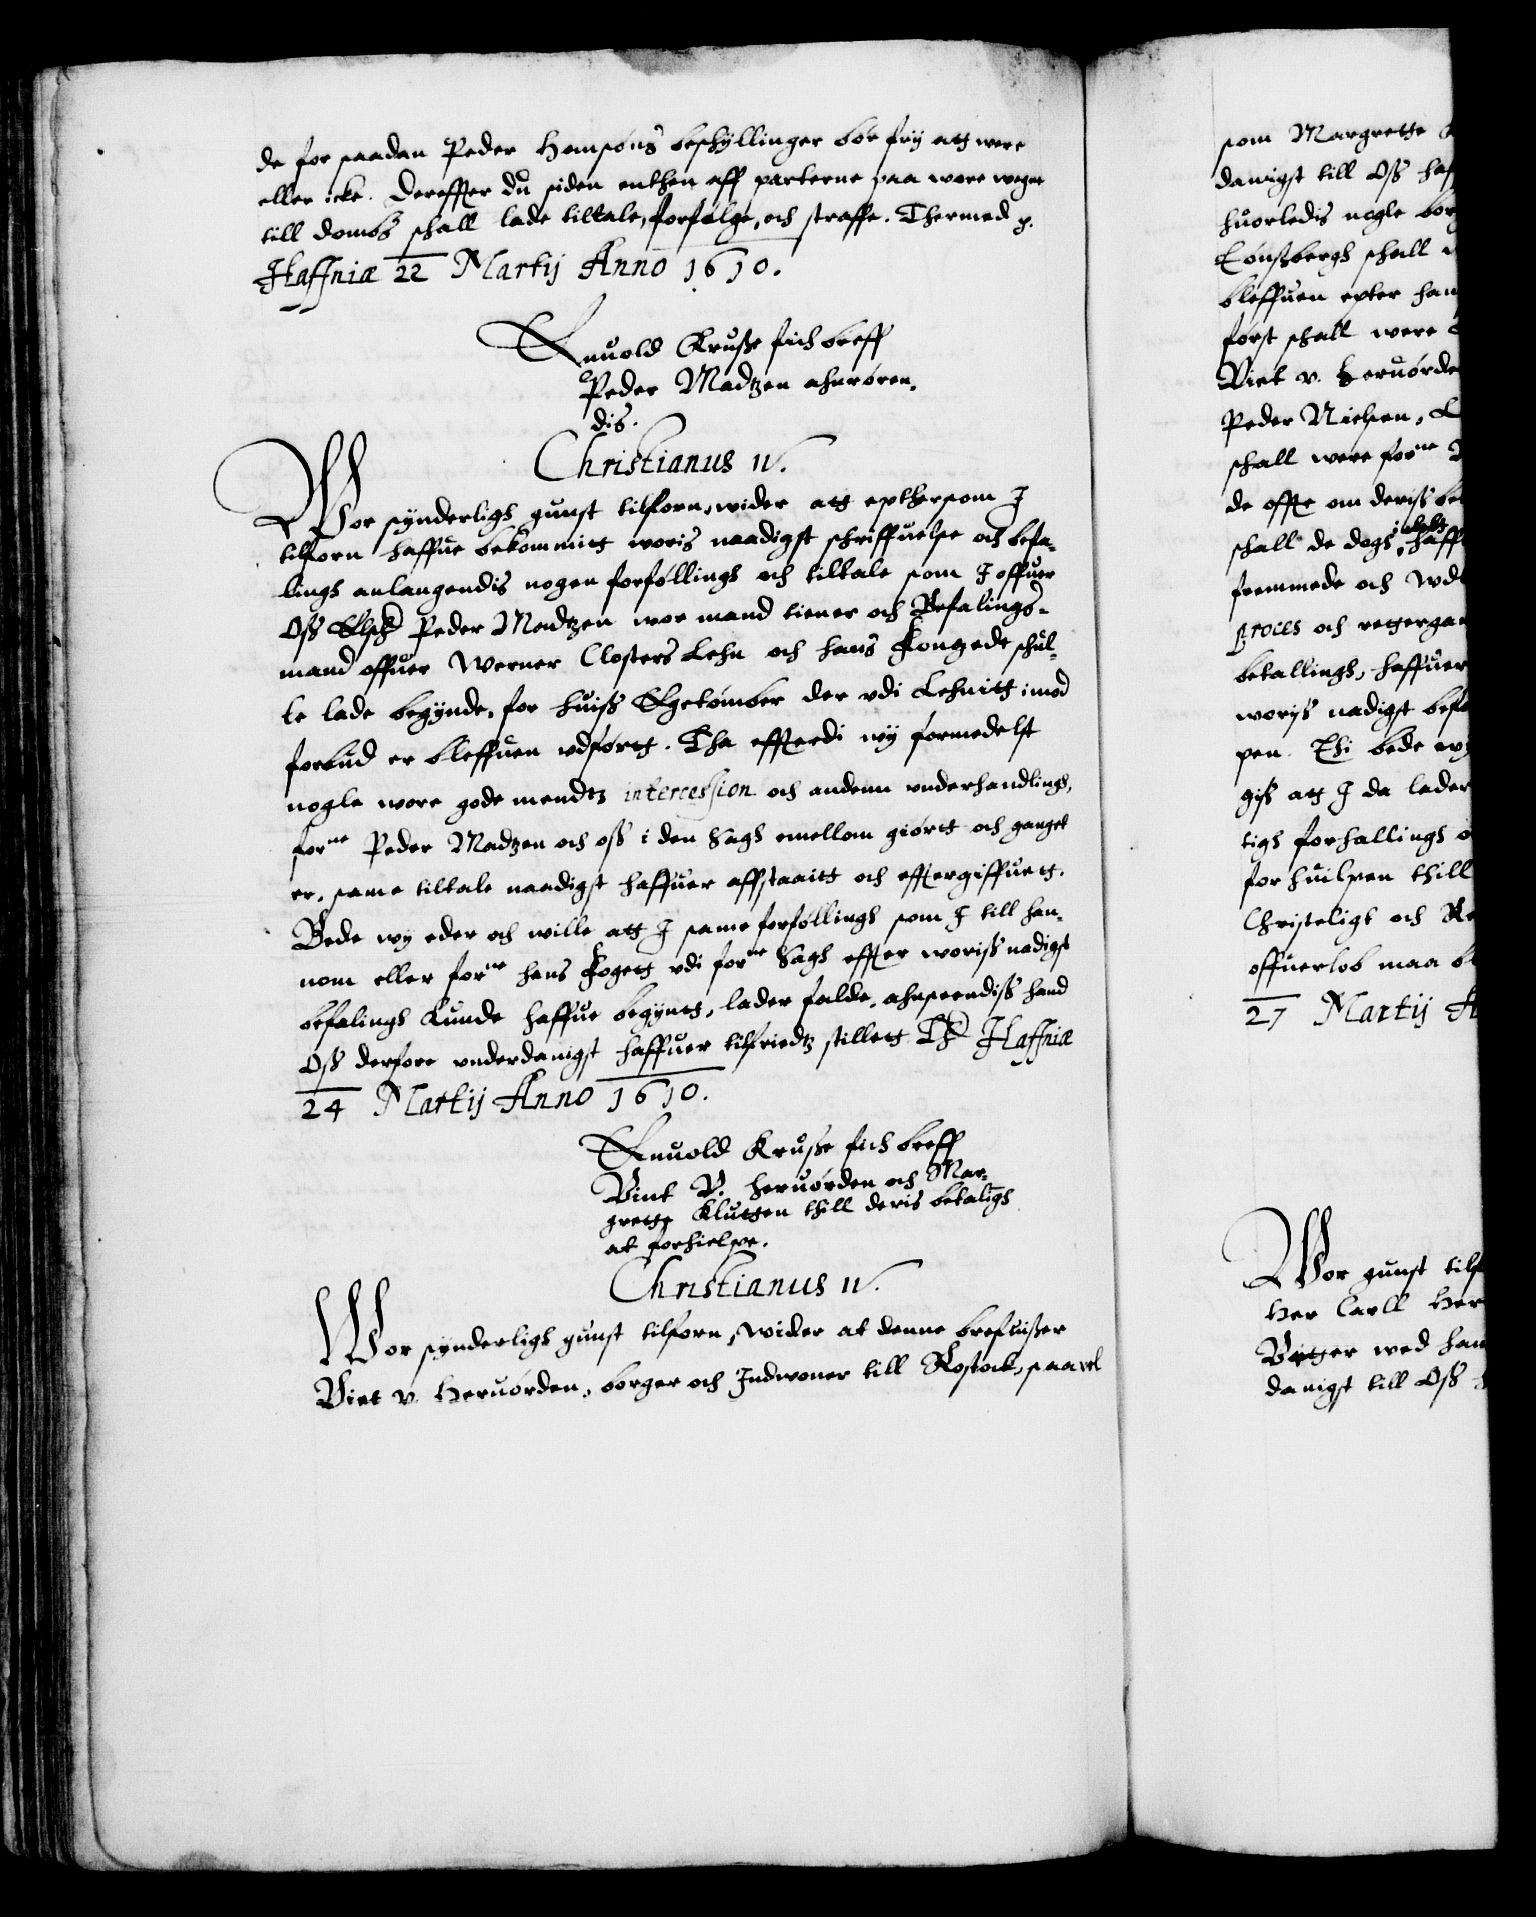 de for saadan Peder Hansøns beschyllinger bør frij att were
eller icke. Dereffter du siden enthen aff parterne paa wore wegne
till dombs schall lade tiltale, forfølge, och straffe. Thermed p.
Haffniæ 22 Martij Anno 1610.
Enuold Kruße fich breff
Peder Madtzen ahnrøren,
dis.
Christianus IV.
Wor synderligh gunst tilforn, wider att epthersom I
tilforn haffue bekommitt woris naadigst schriffuelse och befa-
lingh anlangendis nogen forføllingh och tiltale som I offuer
Oß Elsch Peder Madtzen wor mand tiener och Befalings-
mand offuer Werner Closters Lehn och hans Fougede schul-
le lade begynde, for huiß Egetømber der vdi Lehnitt imod
forbud er bleffuen vdførtt. Tha effterdi wij formedelst
nogle wore gode mendtz intercession och andenn vnderhandlingh,
forne Peder Madtzen och oß i den Sagh emellom giørtt och ganget
er, same tiltale naadigst haffuer affstaaitt och efftergiffuett.
Bede wy eder och wille att I same forføllingh som I till han-
nom eller forne hans Fogett vdi forne Sagh effter woriß nadigst
befalingh kunde haffue begyntt, lader falde, ahnseendiß hand
Oß derfore vnderdanigst haffuer tilfriedtz stillett Th Haffniæ
24 Martij Anno 1610.
Enuold Kruße fich breff
Vint V. Heruørden och Mar-
grette Klutten thill deris betaligh
at forhielpe.
Christianus IV.
Wor synderligh gunst tilforn, Wider at denne brefuißer
Viet v. Heruørden, borger och Indwoner till Rostock, saawel
som Margrette
danigst till Oß haf
huorledis nogle bor
Tønßbergh schall
bleffuen epter han
først schall were
Viet v. Heruørde
Peder Nielsen,
schall were forne
de offte om deriß be
schall de dogh intet haff
fremmede och wd
Proces och rettergan
betallingh, haffuer
worÿs nadigst befa
pen. Thi bede wy
giß att I da lader
tigh forhallingh
forhuilpen thill
Christeligt och Re
offuerlob maa b
27 Martij A
Wor gunst tilf
Her Carll Her
Vøtger wed han
danigst till Oß